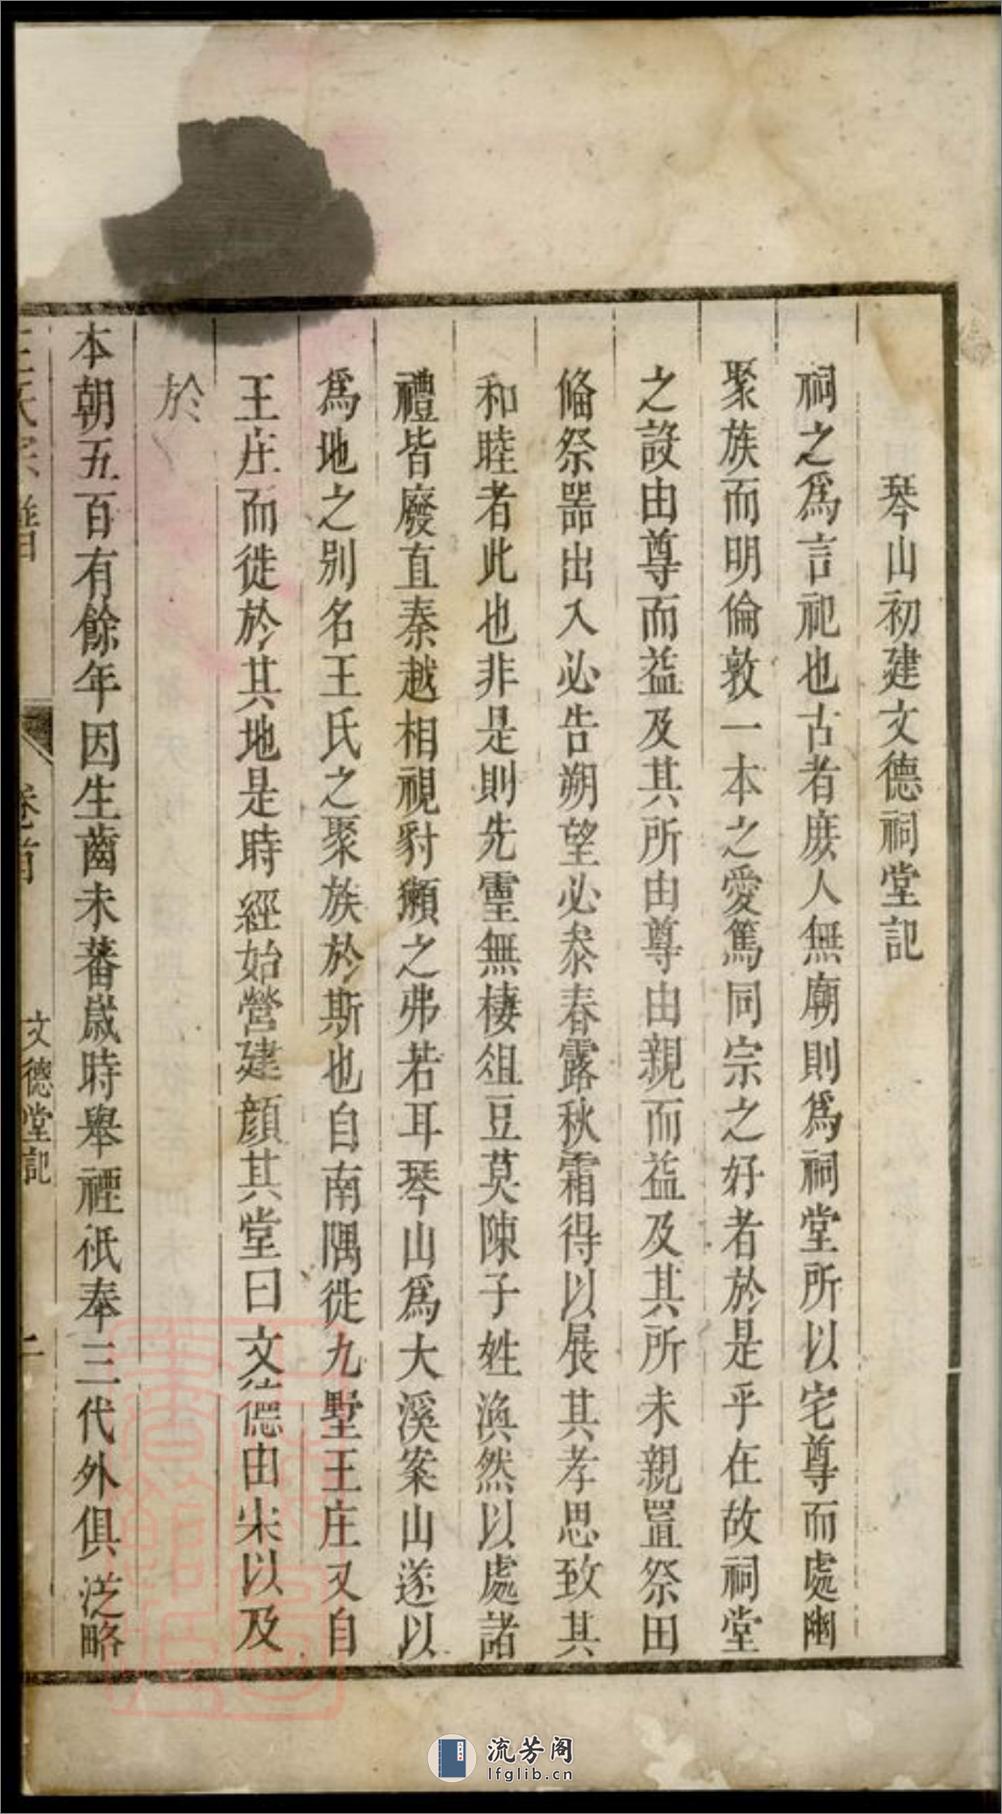 琴山初建文德祠堂記
祠之爲言祀也古者庻人無廟則爲祠堂所以宅尊而處幽
聚族而明倫敦一本之愛篤同宗之好者於是乎在故祠堂
之設由尊而益及其所由尊由親而益及其所未親置祭田
俻祭噐出入必告朔望必叅春露秋霜得以展其孝思致其
和睦者此也非是則先靈無棲俎豆莫陳子姓渙然以處諸
禮皆廢直秦越相視豺獺之弗若耳琴山爲大溪案山遂以
爲地之别名王氏之聚族於斯也自南隅徙九墅王庄又自
王庄而徙於其地是時經始營建顔其堂曰文德由宋以及
於
本朝五百有餘年因生齒未蕃嵗時舉禋祇奉三代外俱泛略
王氏宗譜
卷首
文德堂記
一
流芳阁
lfglib.cn